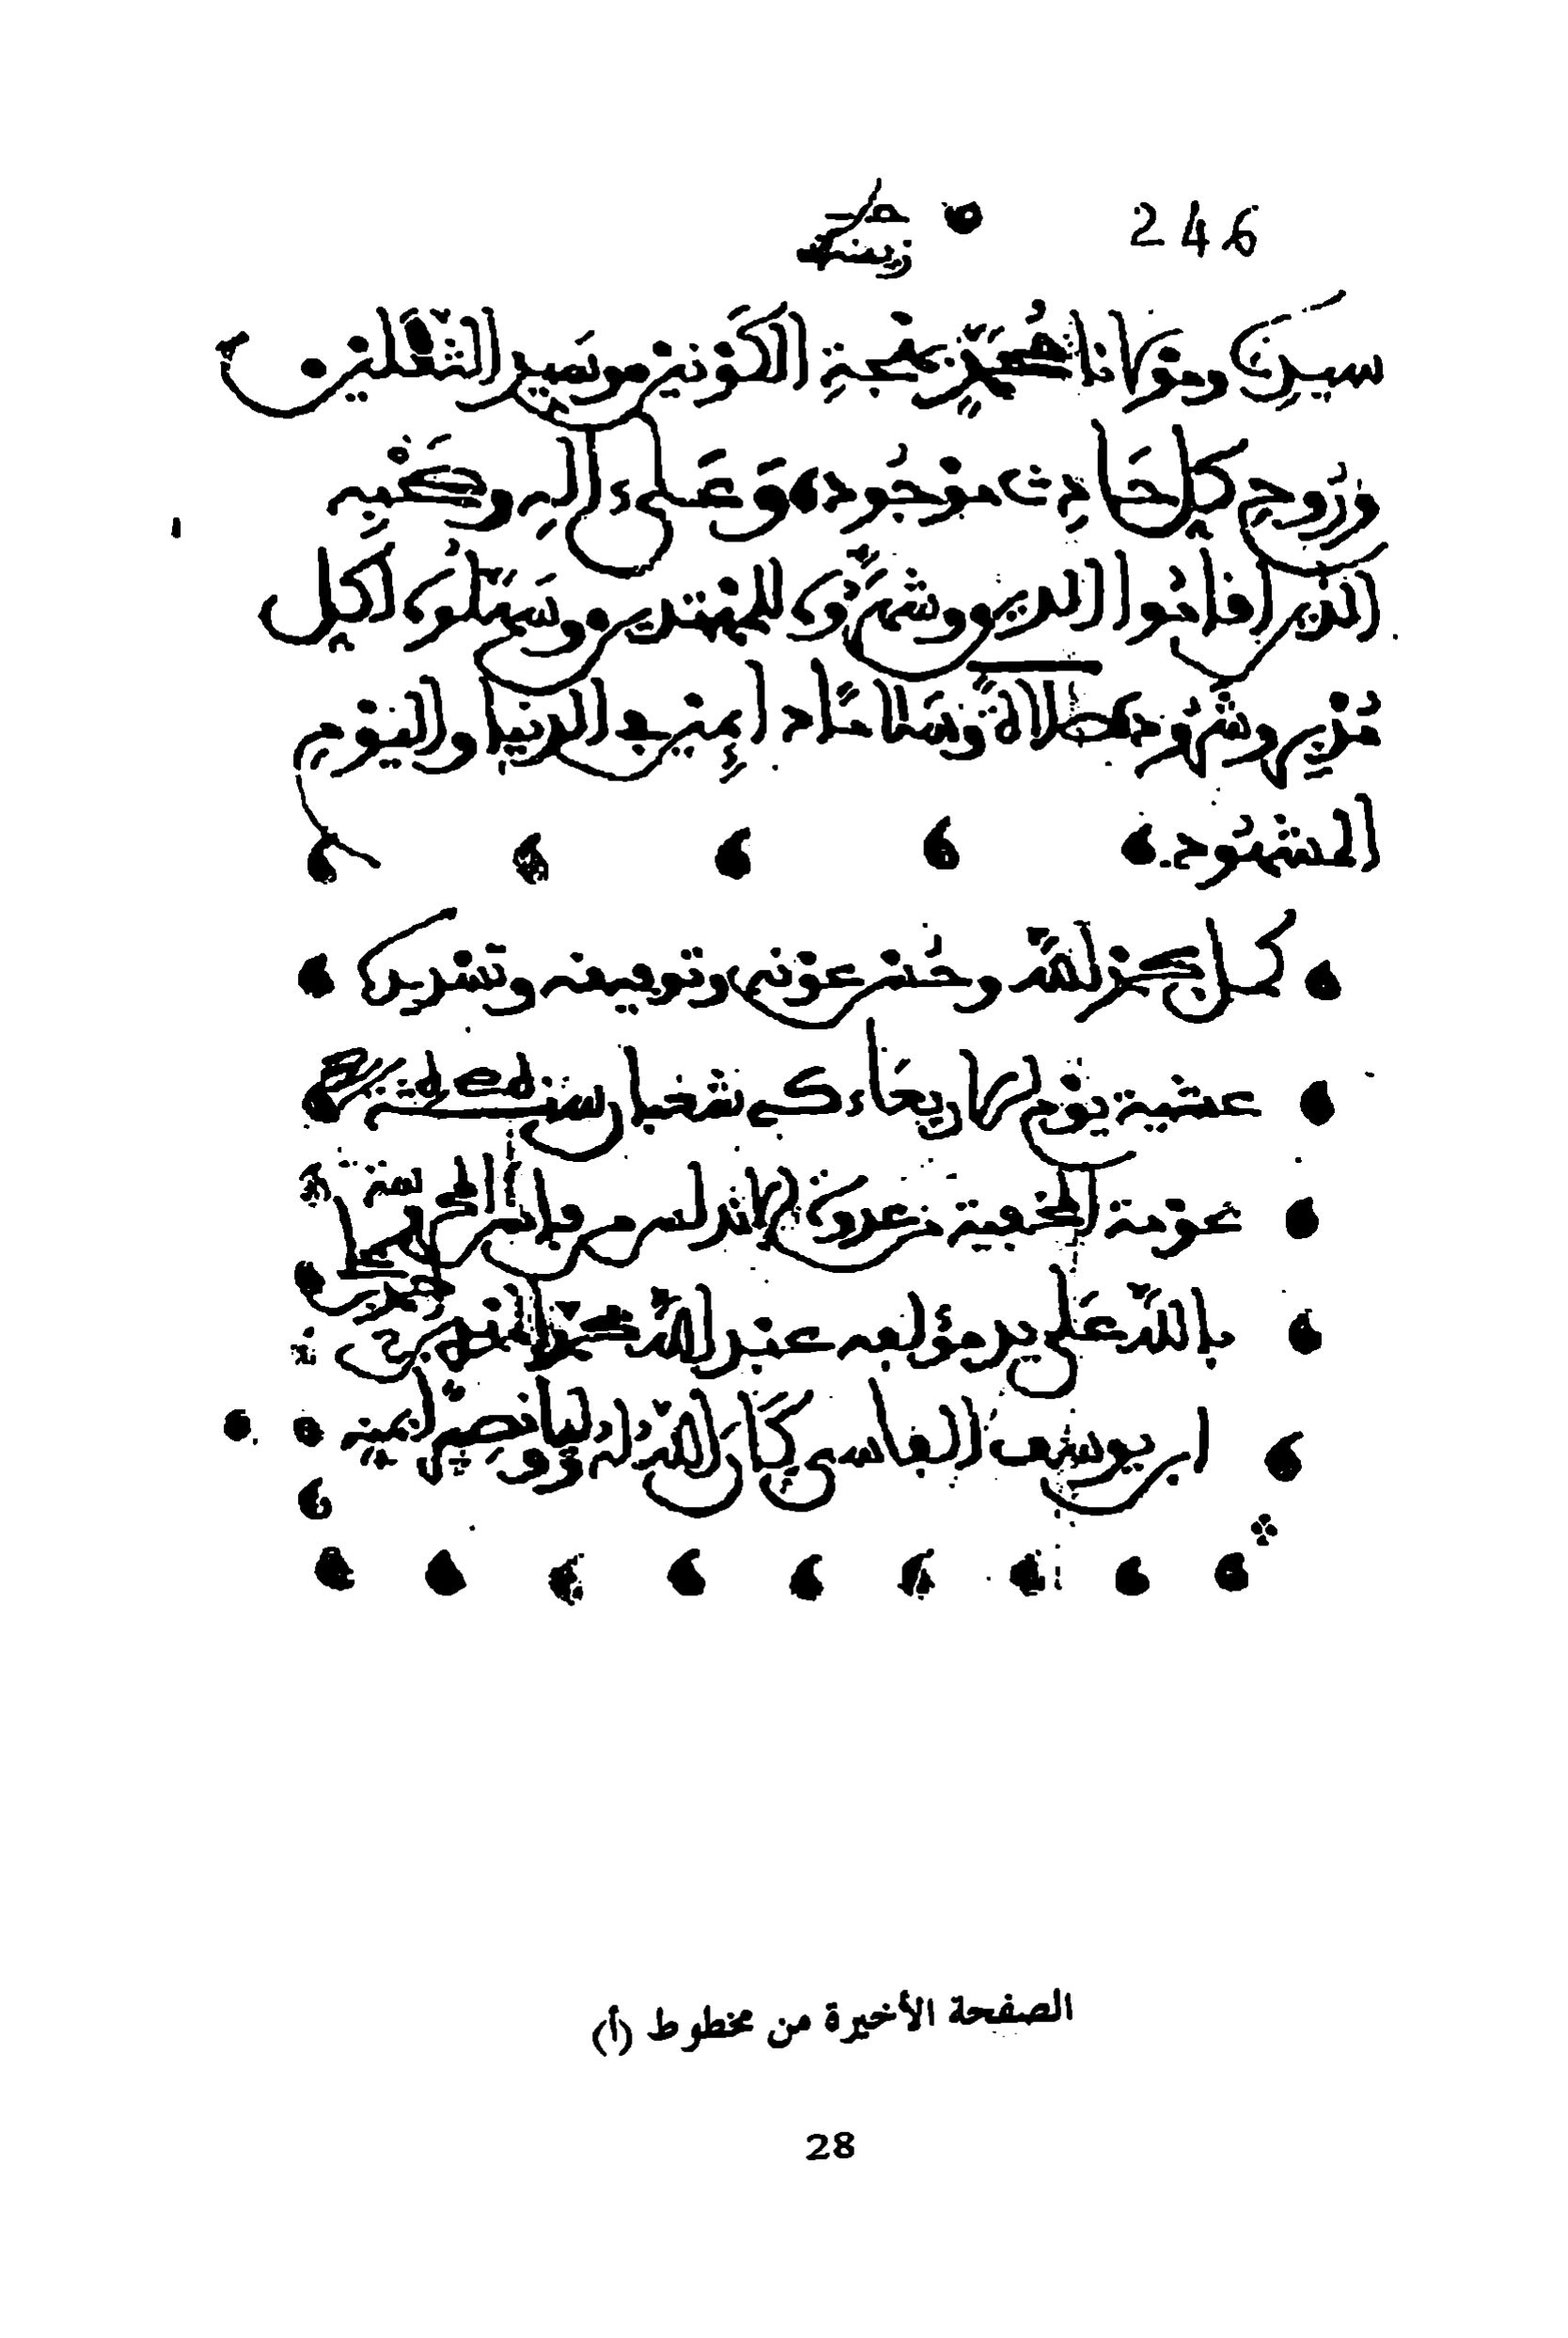 246
سيدنا ومولانا محمد بهجة الكونين وسيد الثقلين
وروح كل حادث موجود وعلى ءاله وصحبه
الذين أقاموا الدين وشهروا للمهتدين وسيلوا لكل
مزيد وشهود صلاة وسلاما دايمين في الدنيا واليوم
المشهود
كمل بحمد الله وحسن عونه وتوفيقه وتسديده
عشية يوم الاربعاء شعبان سنة
عومة الخفية عدوة الاندلس من فاس المحروسة
بالله على يد مؤلفه عبد الله محمد المهدي بن أحمد
ابن يوسف الفاسي كان الله له وليا ونصيرا ءامين
الصفحة الأخيرة من مخطوط (أ)
28